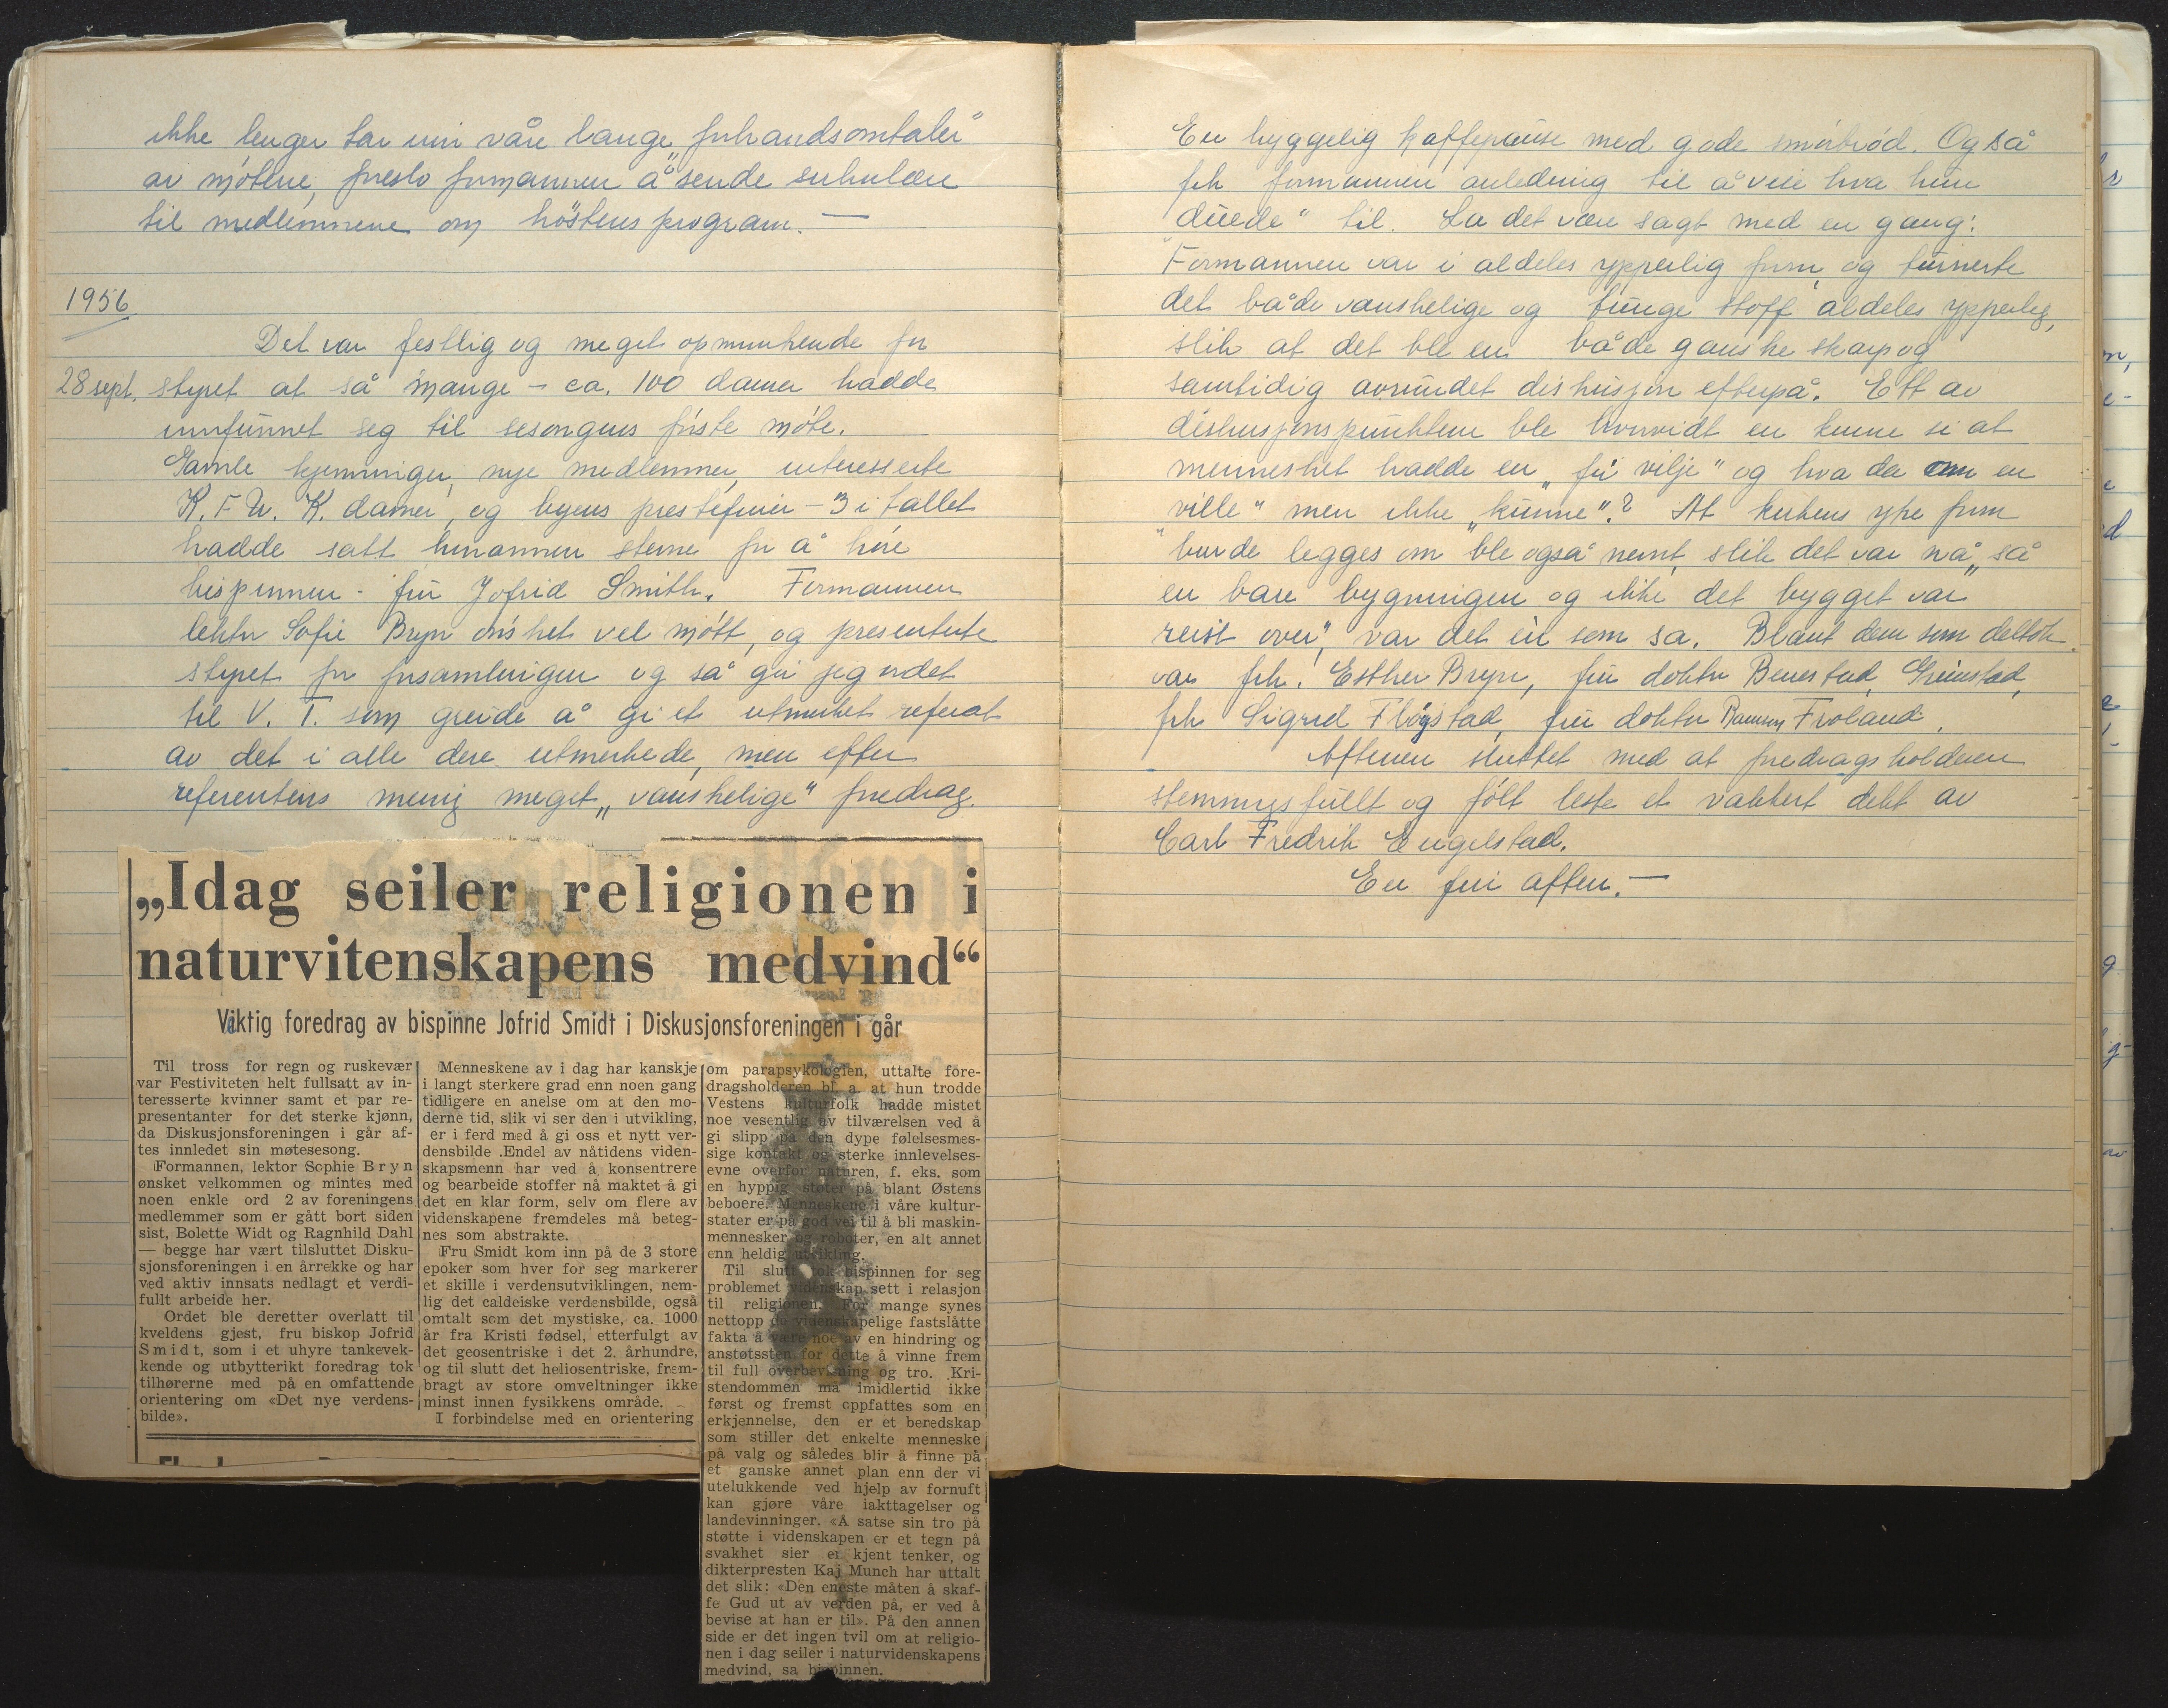 ikke lenger tar inn våre lange „forhandsomtaler"
av møtene, foreslo formannen å sende sirkulære
til medlemmene om høstens program. —
1956
Det var festlig og meget opmuntrende for
28 sept. styret at så mange – ca. 100 damer hadde
innfunnet seg til sesongens første møte.
Gamle kjenninger, nye medlemmer, interesserte
K.F.U.K. damer, og byens prestefruer – 3 i tallet
hadde satt hinannen stevne for å høre
bispinnen – fru Jofrid Smith. Formannen
lektor Sofie Bryn ønsket vel møtt, og presenterte
styret for forsamlingen og så gir jeg ordet
til V. T. som greide å gi et utmerket referat
av det i alle dere utmerkede, men efter
referentens mening meget „vanskelige" foredrag.
„Idag seiler religionen i
naturvitenskapens medvind“
Viktig foredrag av bispinne Jofrid Smidt i Diskusjonsforeningen i går
Til tross for regn og ruskevær
var Festiviteten helt fullsatt av in-
teresserte kvinner samt et par re-
presentanter for det sterke kjønn,
da Diskusjonsforeningen i går af-
tes innledet sin møtesesong.
Formannen, lektor Sophie Bryn
ønsket velkommen og mintes med
noen enkle ord 2 av foreningens
medlemmer som er gått bort siden
sist, Bolette Widt og Ragnhild Dahl
— begge har vært tilsluttet Disku-
sjonsforeningen i en årrekke og har
ved aktiv innsats nedlagt et verdi-
fullt arbeide her.
Ordet ble deretter overlatt til
kveldens gjest, fru biskop Jofrid
Smidt, som i et uhyre tankevek-
kende og utbytterikt foredrag tok
tilhørerne med på en omfattende
orientering om «Det nye verdens-
bilde».
Menneskene av i dag har kanskje
i langt sterkere grad enn noen gang
tidligere en anelse om at den mo-
derne tid, slik vi ser den i utvikling,
er i ferd med å gi oss et nytt ver-
densbilde .Endel av nåtidens viden-
skapsmenn har ved å konsentrere
og bearbeide stoffer nå maktet å gi
det en klar form, selv om flere av
videnskapene fremdeles må beteg-
nes som abstrakte.
Fru Smidt kom inn på de 3 store
epoker som hver for seg markerer
et skille i verdensutviklingen, nem-
lig det caldeiske verdensbilde, også
omtalt som det mystiske, ca. 1000
år fra Kristi fødsel, etterfulgt av
det geosentriske i det 2. århundre,
og til slutt det heliosentriske, frem-
bragt av store omveltninger ikke
minst innen fysikkens område.
I forbindelse med en orientering
om parapsykologien, uttalte fore-
dragsholderen bl. a. at hun trodde
Vestens kulturfolk hadde mistet
noe vesentlig av tilværelsen ved å
gi slipp på den dype følelsesmes-
sige kontakt og sterke innlevelses-
evne overfor naturen, f. eks. som
en hyppig støter på blant Østens
beboere. Menneskene i våre kultur-
stater er på god vei til å bli maskin-
mennesker og roboter, en alt annet
enn heldig utvikling.
Til slutt tok bispinnen for seg
problemet videnskap sett i relasjon
til religionen. For mange synes
nettopp de videnskapelige fastslåtte
fakta å være noe av en hindring og
anstøtssten for dette å vinne frem
til full overbevisning og tro. Kri-
stendommen må imidlertid ikke
først og fremst oppfattes som en
erkjennelse, den er et beredskap
som stiller det enkelte menneske
på valg og således blir å finne på
et ganske annet plan enn der vi
utelukkende ved hjelp av fornuft
kan gjøre våre iakttagelser og
landevinninger. «Å satse sin tro på
støtte i videnskapen er et tegn på
svakhet sier en kjent tenker, og
dikterpresten Kaj Munch har uttalt
det slik: «Den eneste måten å skaf-
fe Gud ut av verden på, er ved å
bevise at han er til». På den annen
side er det ingen tvil om at religio-
nen i dag seiler i naturvidenskapens
medvind, sa bispinnen.
En hyggelig kaffepause med gode smørbrød. Også
fikk formannen anledning til å vise hva hun
„duede" til. La det være sagt med en gang:
Formannen var i aldeles ypperlig form, og turnerte
det både vanskelige og tunge stoff aldeles ypperlig,
slik at det ble en både ganske skarp og
samtidig avrundet diskusjon efterpå. Ett av
diskusjonspunktene ble hvorvidt en kunne si at
mennesket hadde en „fri vilje" og hva da om en
„ville" men ikke „kunne"? At kirkens ytre form
burde legges om ble også nevnt, slik det var nå „så
en bare bygningen og ikke det bygget var
reist over", var det en som sa. Blant dem som deltok
var frk. Esther Bryn, fru doktor Benestad, Grimstad,
frk Sigrid Fløgstad, fru doktor Froland.
Aftenen sluttet med at foredragsholderen
stemningsfullt og følt leste et vakkert dikt av
Carl Fredrik Engelstad.
En fin aften. —